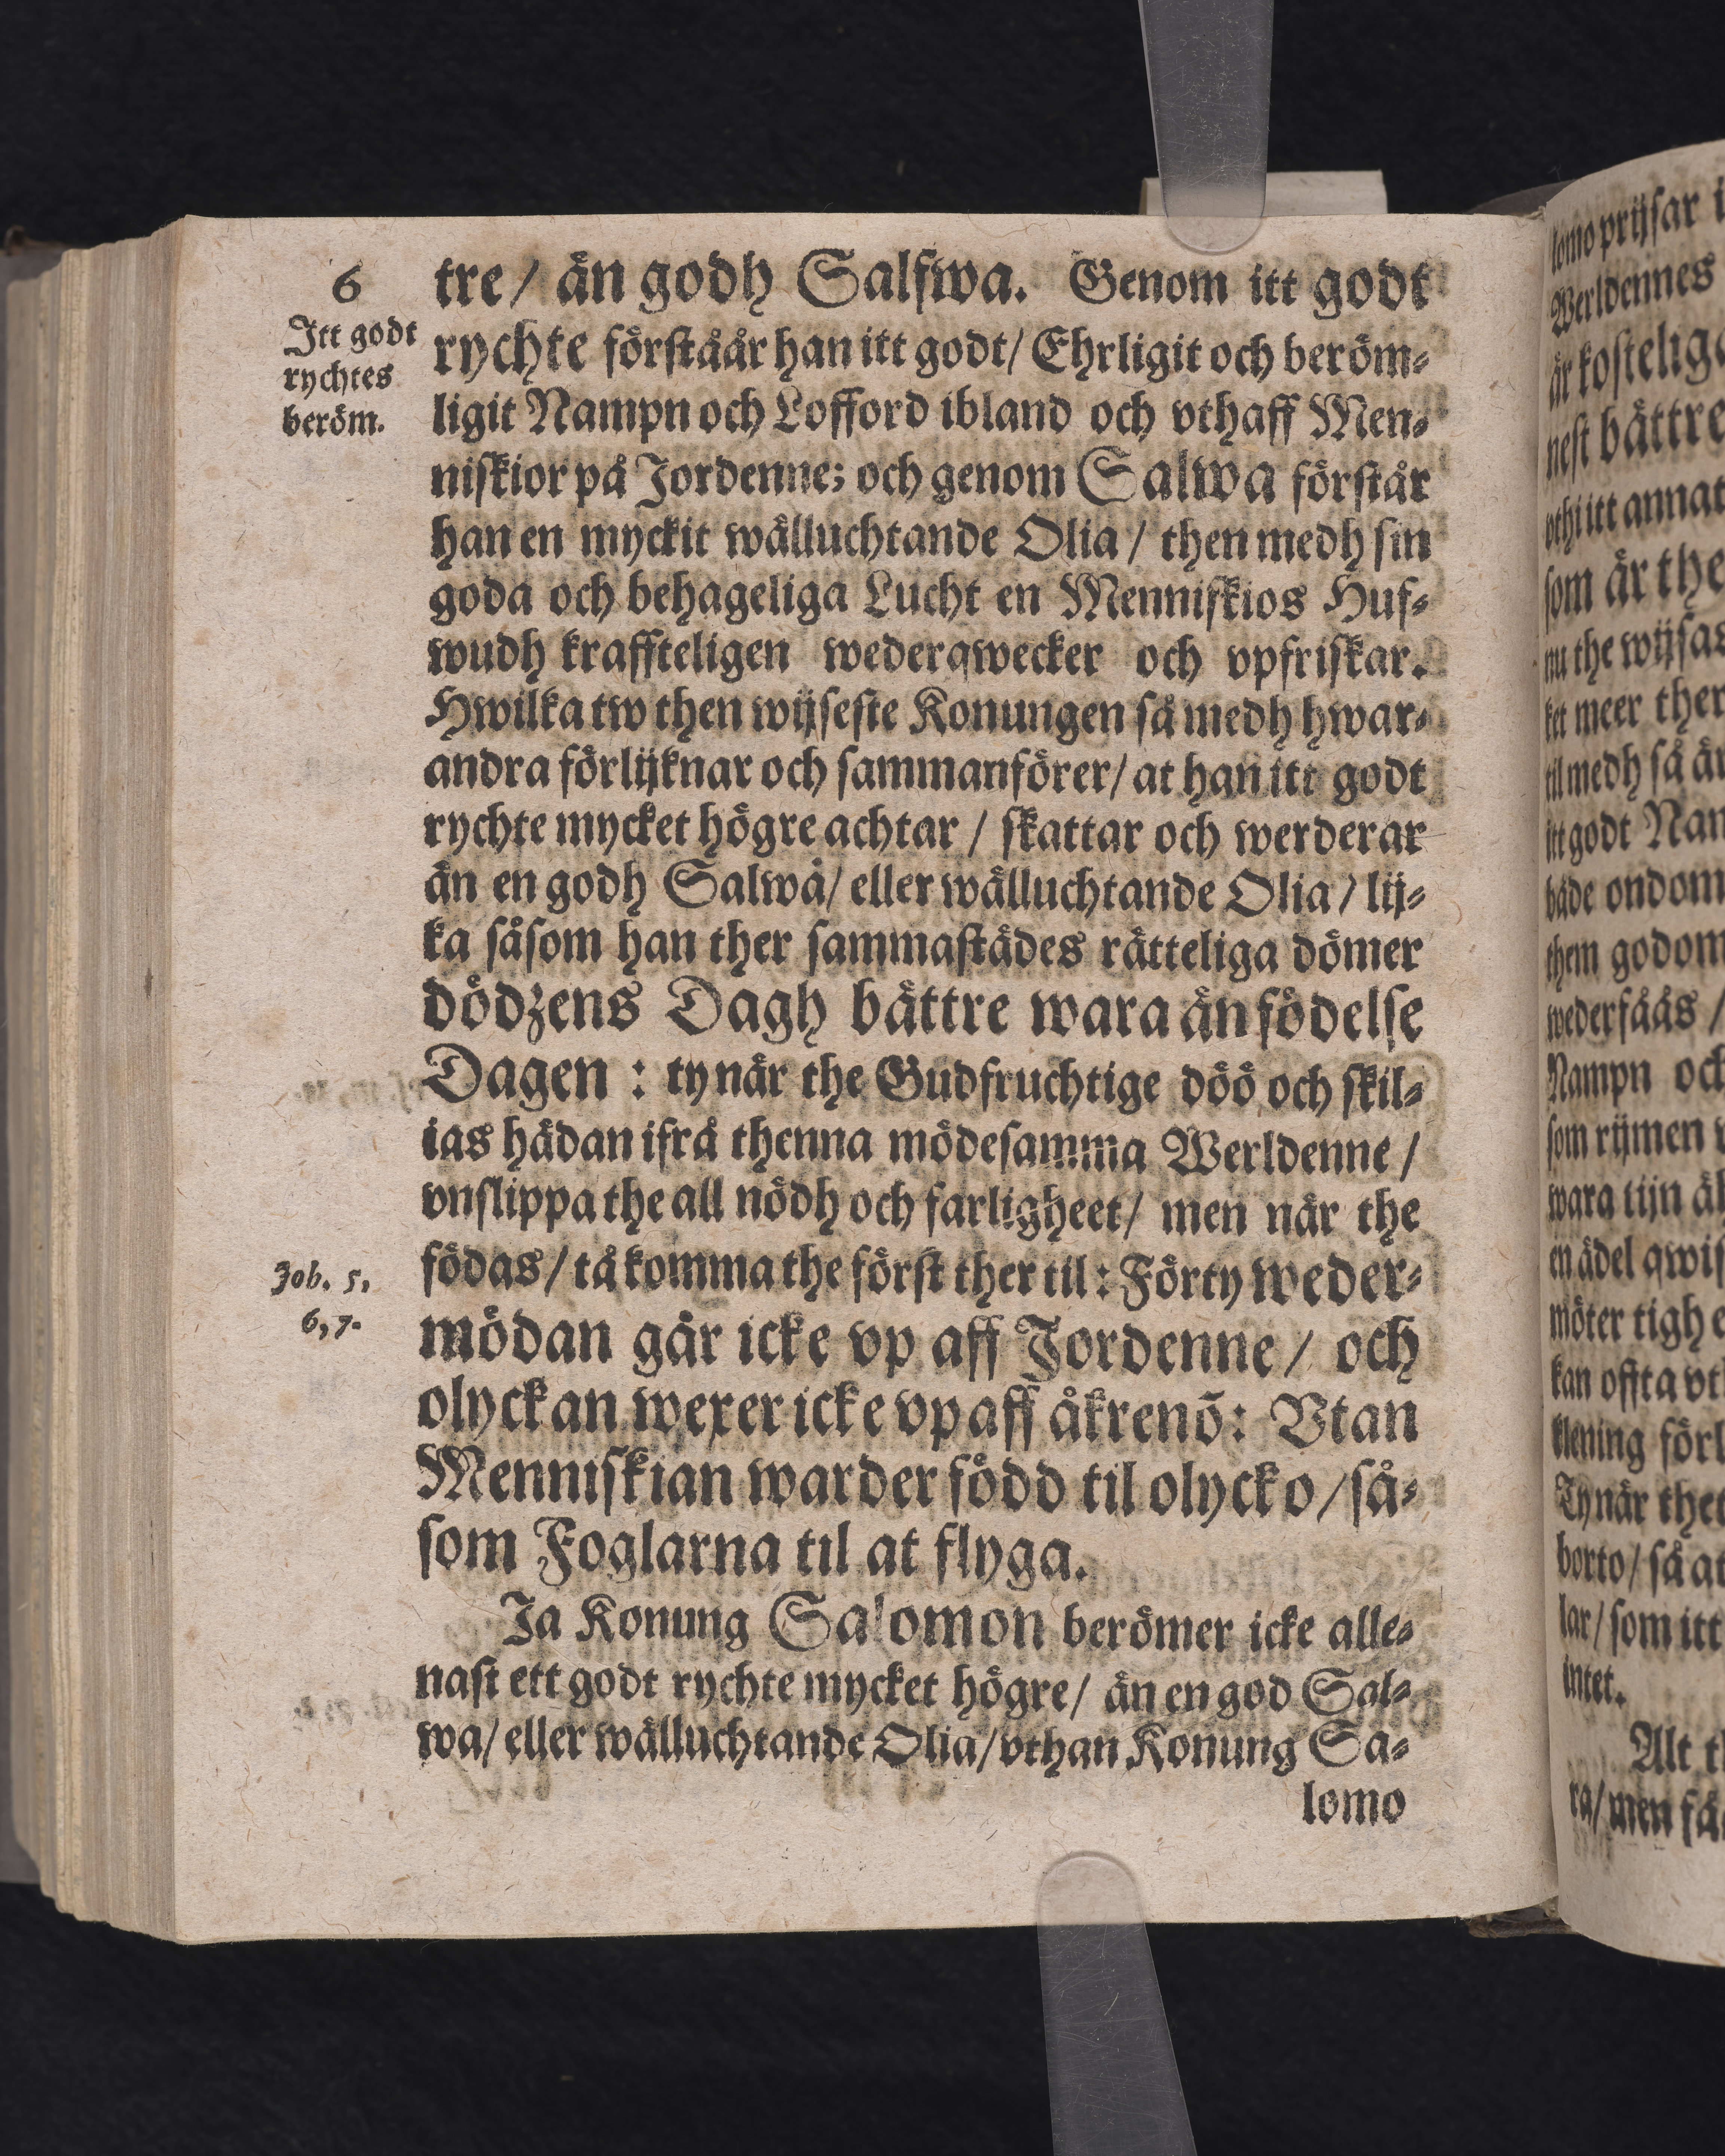 6
Itt godt
rychtes
beröm.
tre / än godh Salfwa. Genom itt godt
rychte förståår han itt godt / Ehrligit och beröm-
ligit Nampn och Lofford ibland och vthaff Men-
niskior på Jordenne; och genom Salwa förstår
han en myckit wälluchtande Olia / then medh sin
goda och behageliga Lucht en Menniskios Huf-
wudh kraffteligen wederqwecker och vpfriskar.
Hwilka tw then wijseste Konungen så medh hwar-
andra förlijknar och sammanförer / at han itt godt
rychte mycket högre achtar / skattar och werderar
än en godh Salwa / eller wälluchtande Olia / lij-
ka såsom han ther sammastädes rätteliga dömer
dödzens Dagh bättre wara än födelse
Dagen : ty när the Gudfruchtige döö och skil-
ias hädan ifrå thenna mödesamma Werldenne /
vnslippa the all nödh och farligheet / men när the
födas / tå komma the först ther til : Förty weder-
mödan går icke vp aff Jordenne / och
olyckan wexer icke vp aff åkrenõ: Vtan
Menniskian warder född til olycko / så-
som Foglarna til at flyga.
Job. 5,
6, 7.
Ja Konung Salomon berömer icke alle-
nast ett godt rychte mycket högre / än en god Sal-
wa / eller wälluchtande Olia / vthan Konung Sa-
lomo
lomo prijsar
Werldennes
är
nest bättre
vthi itt annat
som är the
nu the wijsas
ket meer ther
til medh så
itt godt
både ondom
them godom
wederfåås /
Nampn och
som rijmen
wara tijn
en ädel
möter tigh
kan offta
klening
Ty när thet
borto / så at
lar / som itt
intet.
Alt
ra / men